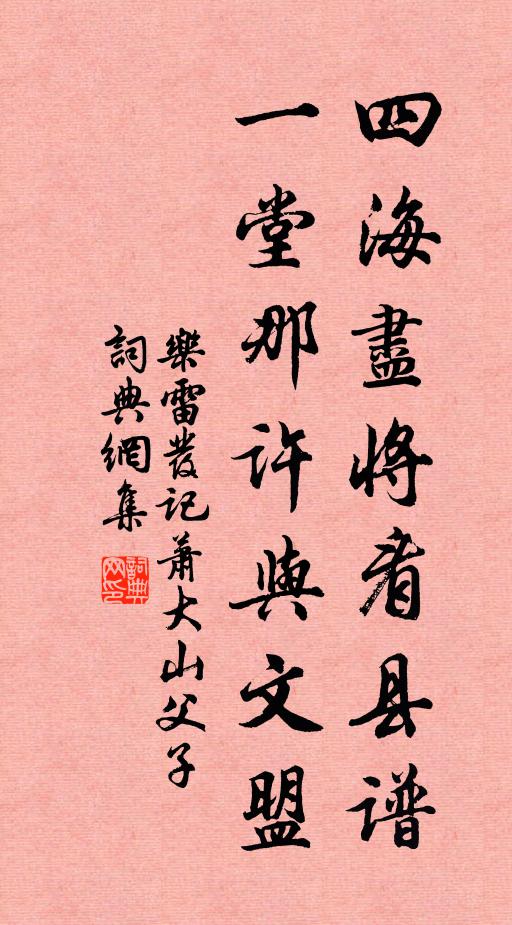 四海盡將看县谱
一堂那许與文盟
樂雷發记萧大山父子
詞典網集
詞典网印